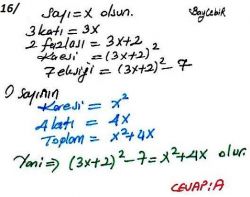 16/ Sayı = x olsun.
Baylebir
3 katı = 3x
2 fazlası = 3x+2
Karesi = (3x+2)²
7 eksiği = (3x+2)² - 7
O sayının
Karesi = x²
4 katı = 4x
Toplam = x²+4x
Yani ⇒ (3x+2)² - 7 = x²+4x olur.
CEVAP: A